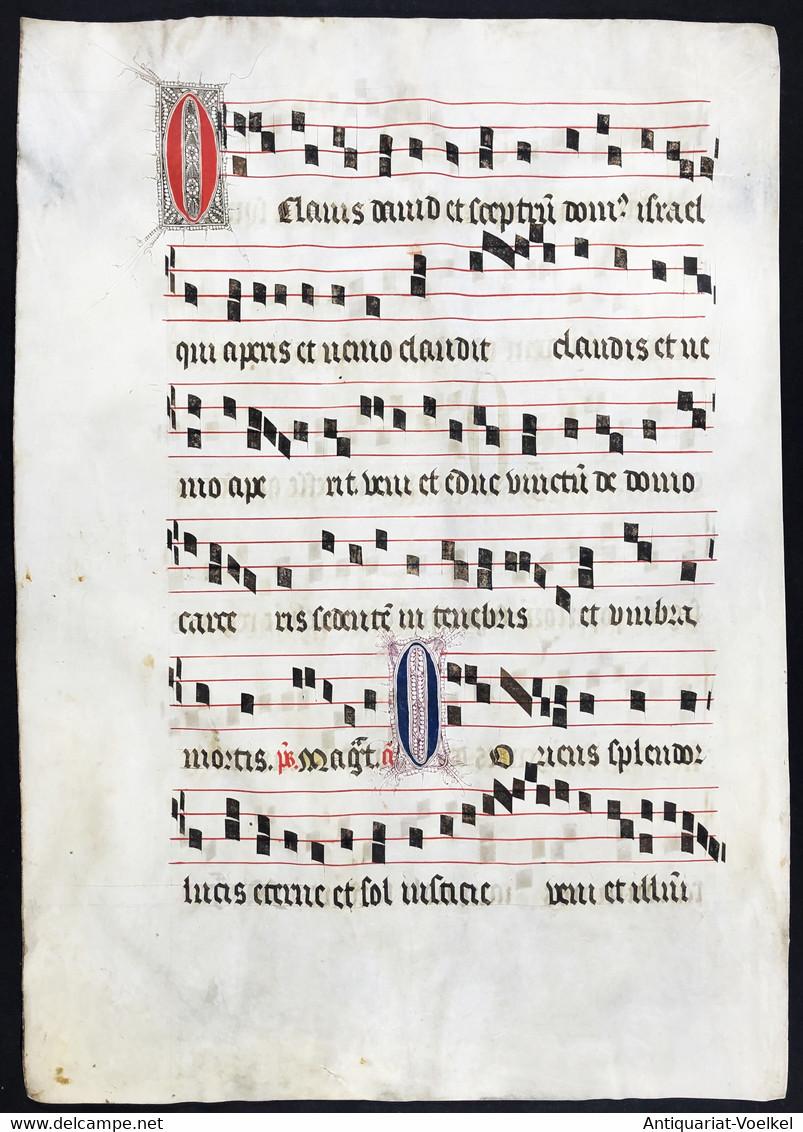 O Clavis david et sceptrū dom⁹ israel
qui aperis et nemo claudit claudis et ne
mo ape rit. veni et educ vinctū de domo
carce ris sedentē in tenebris et umbra
mortis. ps. Magt̄. ā O O riens splendor
lucis eterne et sol iusticie veni et illūi
Antiquariat-Voelkel